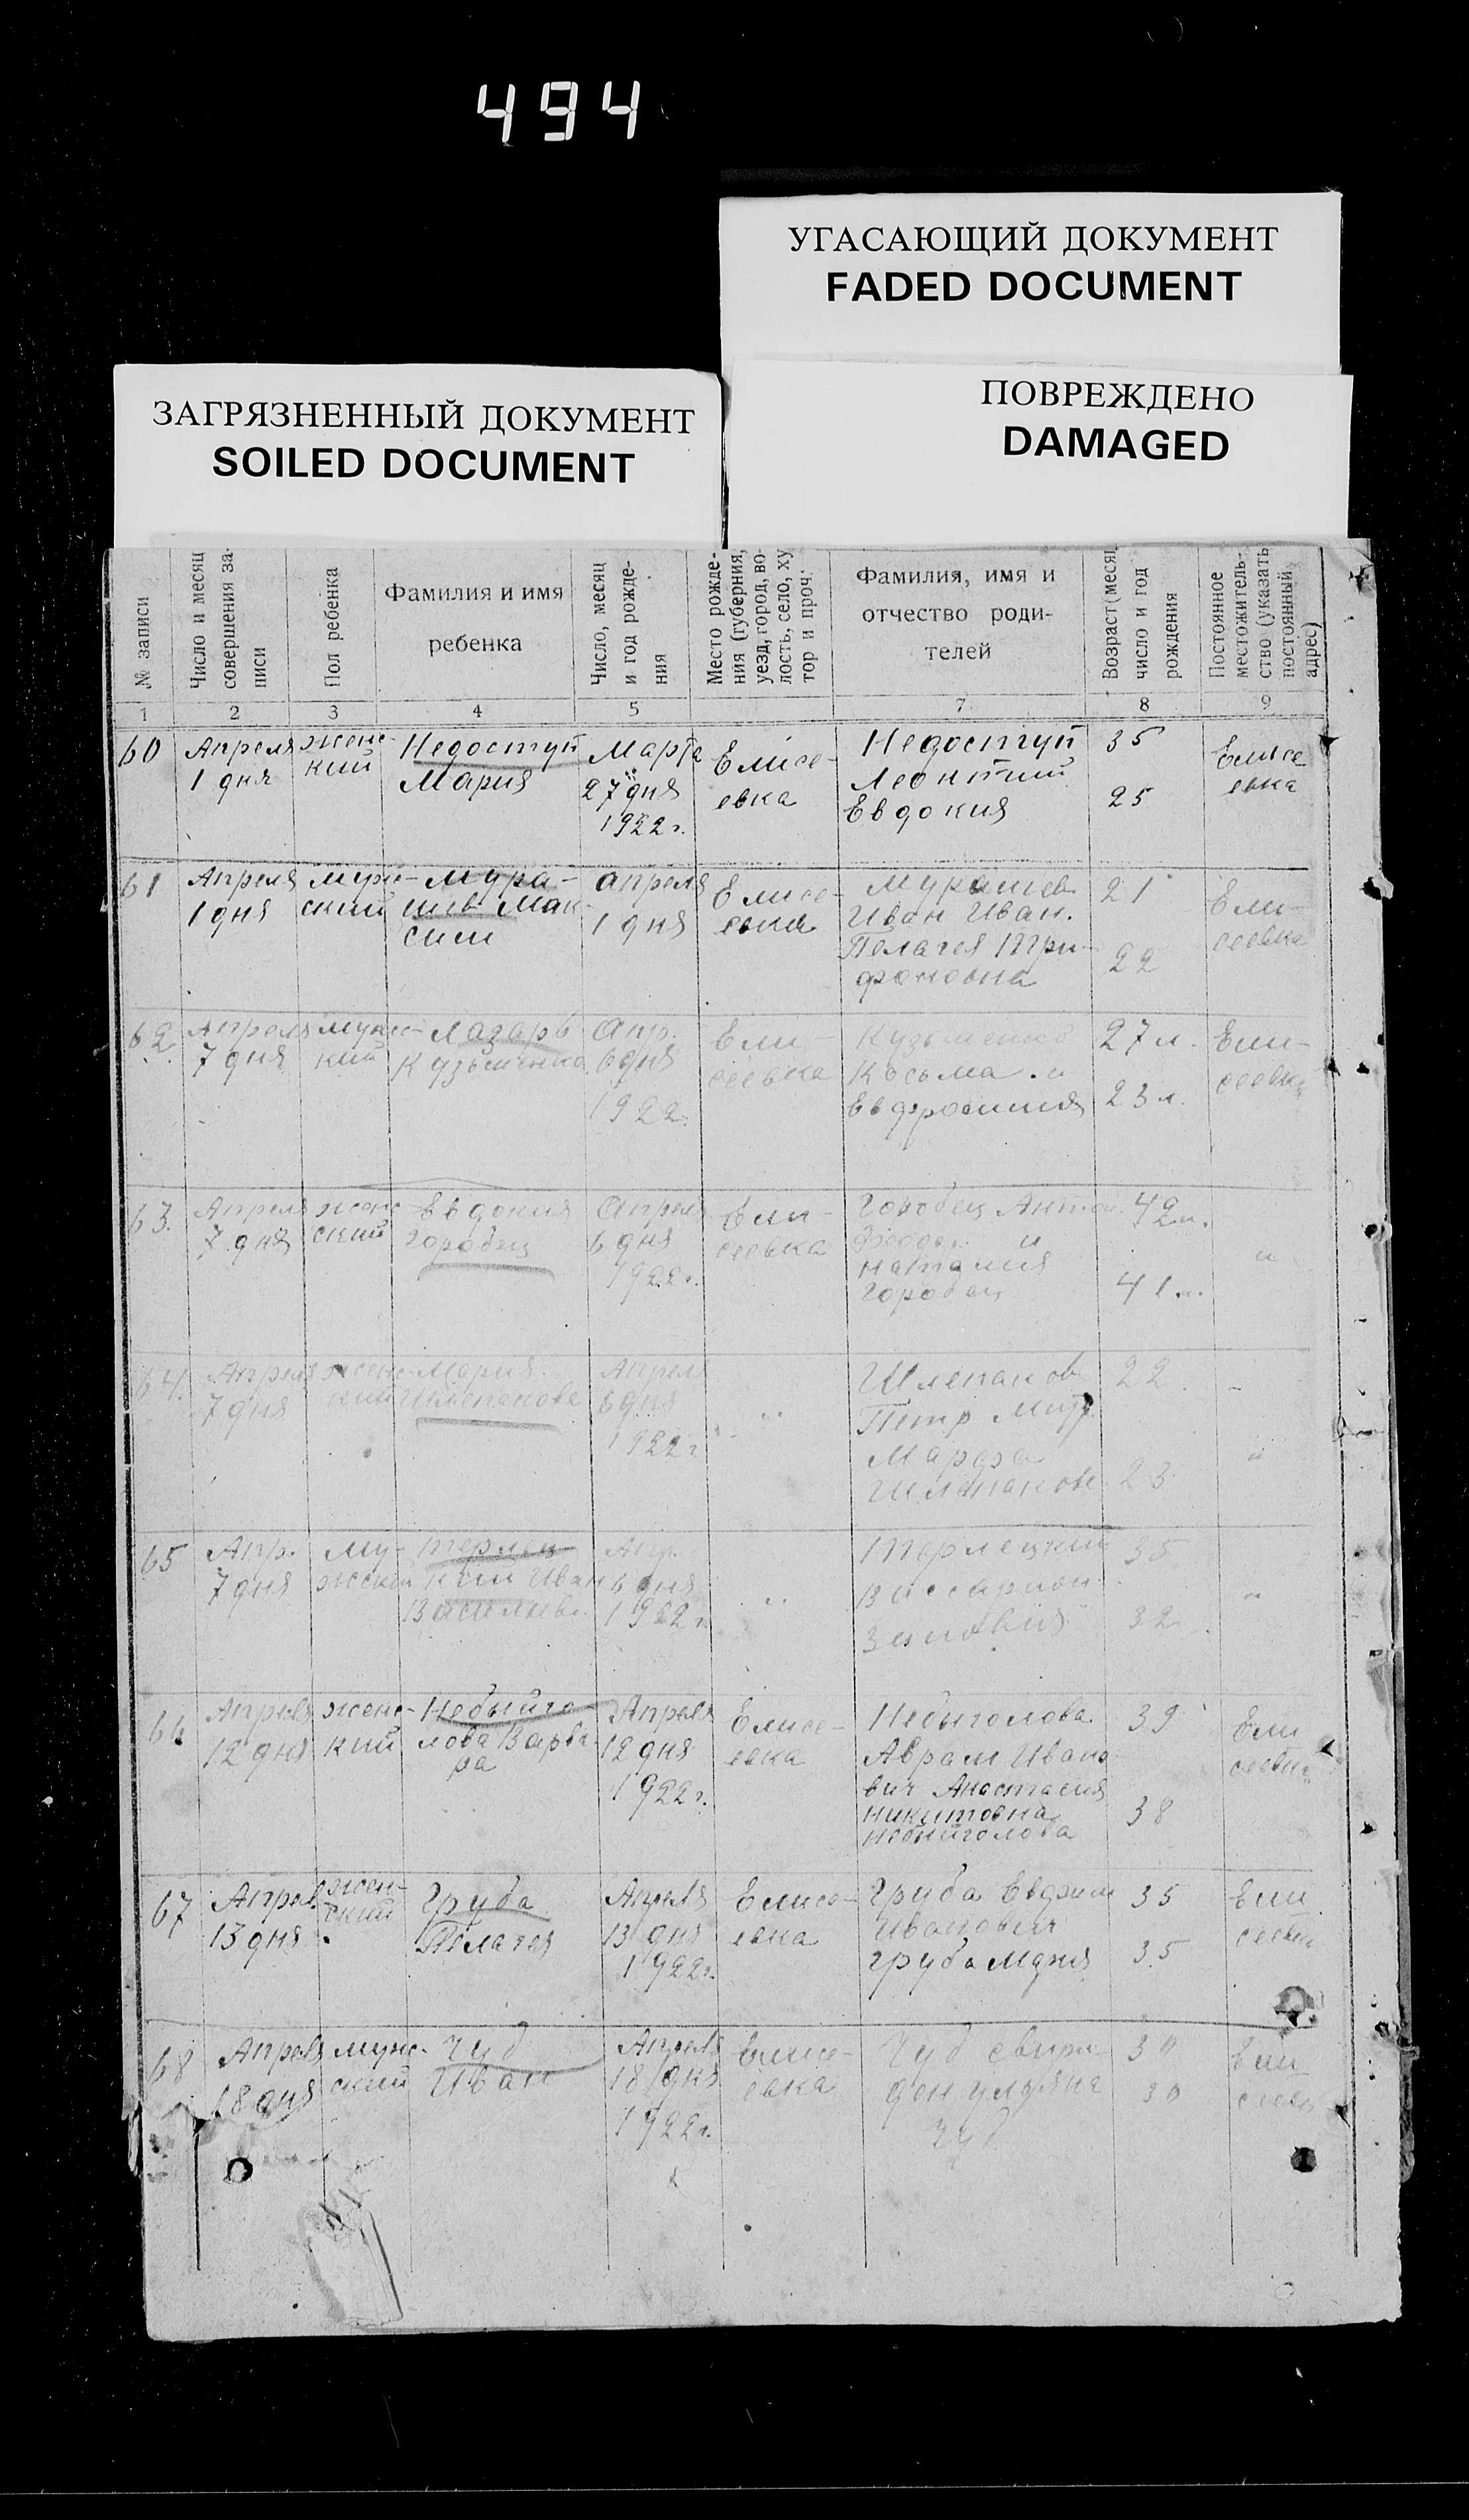 494
УГАСАЮЩИЙ ДОКУМЕНТ
FADED DOCUMENT
ЗАГРЯЗНЕННЫЙ ДОКУМЕНТ
SOILED DOCUMENT
ПОВРЕЖДЕНО
DAMAGED
№ записи
Число и месяц
совершения за-
писи
Пол ребенка
Фамилия и имя
ребенка
Число, месяц
и год рожде-
ния
Место рожде-
ния (губерния,
уезд, город, во-
лость, село, ху
тор и проч.
Фамилия, имя и
отчество роди-
телей
Возраст (месяц
число и год
рождения
Постоянное
местожитель-
ство (указать
постоянный
адрес)
1 2 3 4 5 7 8 9
60
Апреля
1 дня
женс-
кий
Недоступ
Мария
Марта
27 дня
1922 г.
Елисе-
евка
Недоступ
Леонтий
Евдокия
35
25
Елисе
евка
61
Апреля
1 дня
муж-
ский
Мура-
шев Мак-
сим
апреля
1 дня
Елисе-
евка
Мурашев
Иван Иван.
Пелагея Три-
фоновна
21
22
Ели-
сеевка
62
Апреля
7 дня
мужс-
кий
Лазарь
Кузьменко
Апр.
6 дня
1922.
Ели-
сеевка
Кузьменко
Косьма и
Евфросиния
27 л.
23 л.
Ели-
сеевка
63.
Апреля
7 дня
женс
ский
Евдокия
Горобец
Апреля
6 дня
1922 г.
Ели-
сеевка
Горобец Антон
и
Наталия
Горобец
42 л.
41 л.
"
64.
Апреля
7 дня
женс-
кий
Мария
Шлепакова
Апреля
6 дня
1922 г
"
Шлепаков
Петр Митр.
Марфа
Шлепакова
22
23
"
65
Апр.
7 дня
му-
жский
Терлец-
кий Иван
Васильев.
Апр.
6 дня
1922 г.
"
Терлецкий
Виссарион
Зиновия
38
32
"
66
Апреля
12 дня
женс-
кий
Небыйго-
лова Варва-
ра
Апреля
12 дня
1922 г.
Елисе-
евка
Небыголова
Аврам Ивано
вич Анастасия
Никитовна
Небыйголова
39
38
Ели
сеевка
67
Апрел.
13 дня
жен-
ский
Груба
Пелагея
Апреля
13 дня
1922 г.
Елисе-
евка
Груба Евфим
Иванович
Груба Мария
35
35
Ели
сеевка
68
Апреля
18 дня
мужс-
ский
Чуб
Иван
Апреля
18 дня
1922 г.
Елисе-
евка
Чуб Свири
дон
Чуб
30
30
Ели
сеев